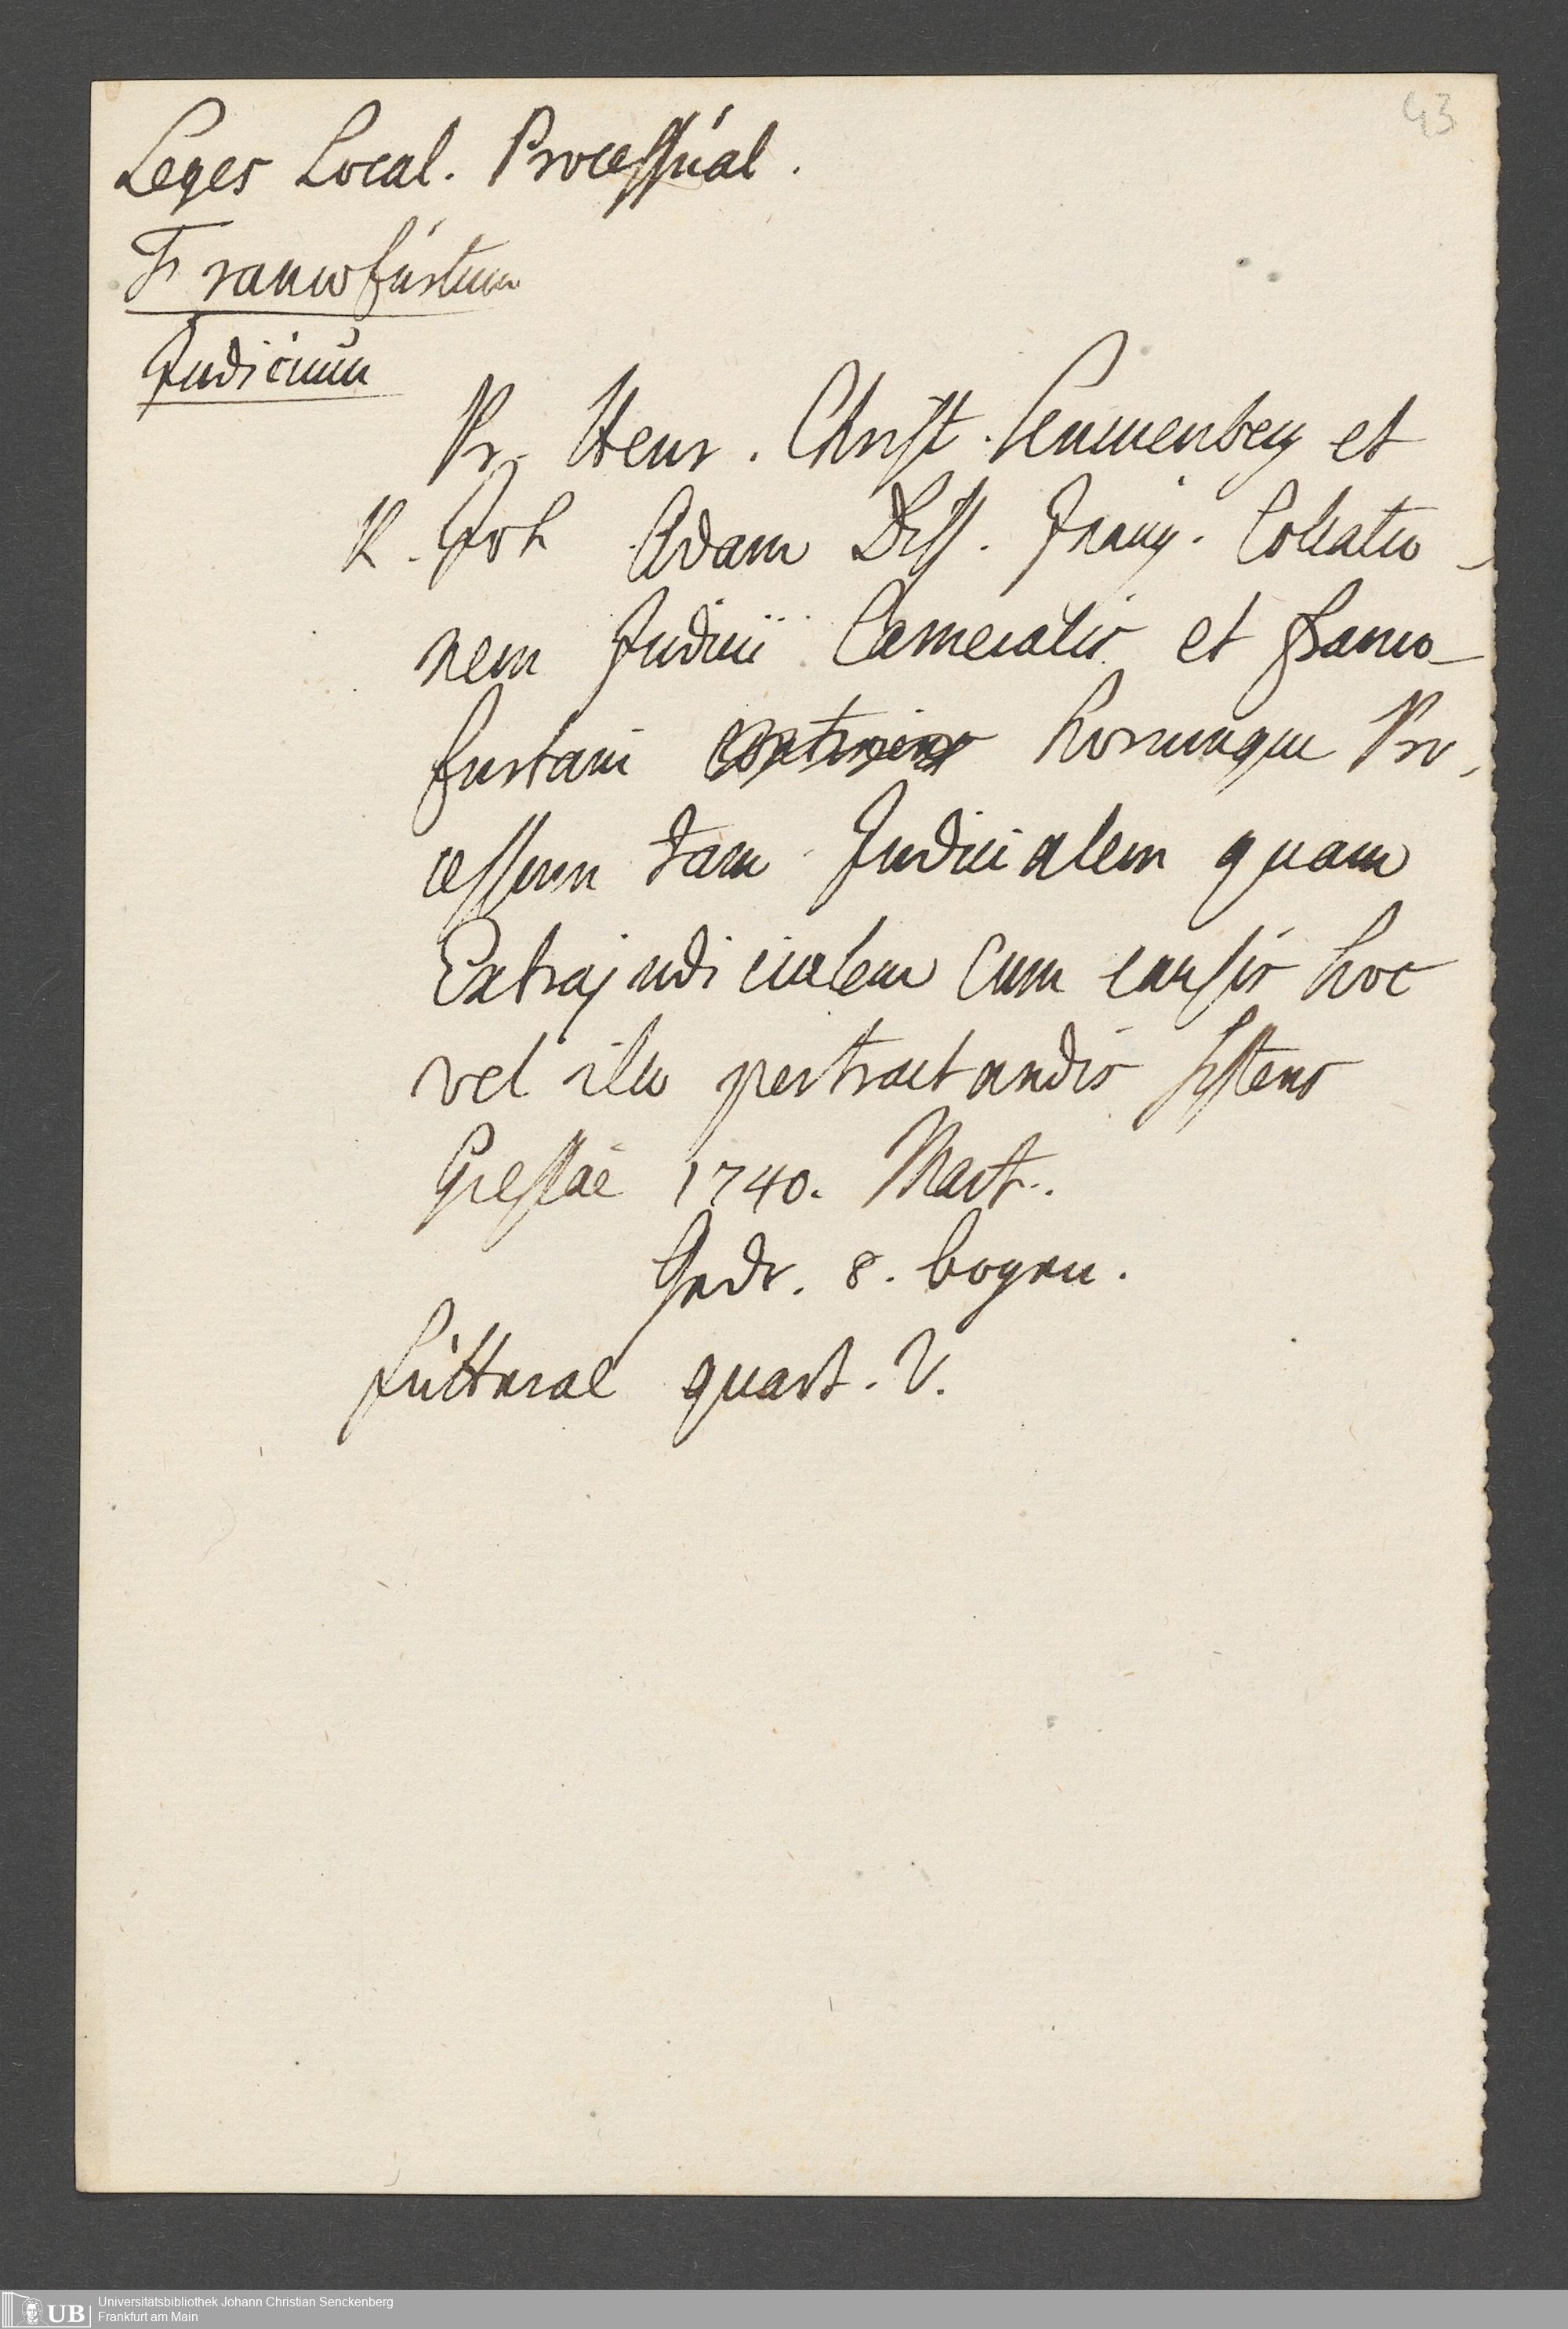 43
Leges Local. Processual.
Francofurtum
Judicium
Pr. Henr. Christ. Senckenberg et
R. Joh Adam Diss. Inaug. Collatio-
nem Judicii Cameralis et Franco-
furtani continens horumque Pro-
cessum tam Judicialem quam
Extrajudicialem cum causis hoc
vel illo pertractandis sistens
Giessae 1740. Mart.
Gedr. 8. bogen.
Futteral quart. V.
UB Universitätsbibliothek Johann Christian Senckenberg
Frankfurt am Main